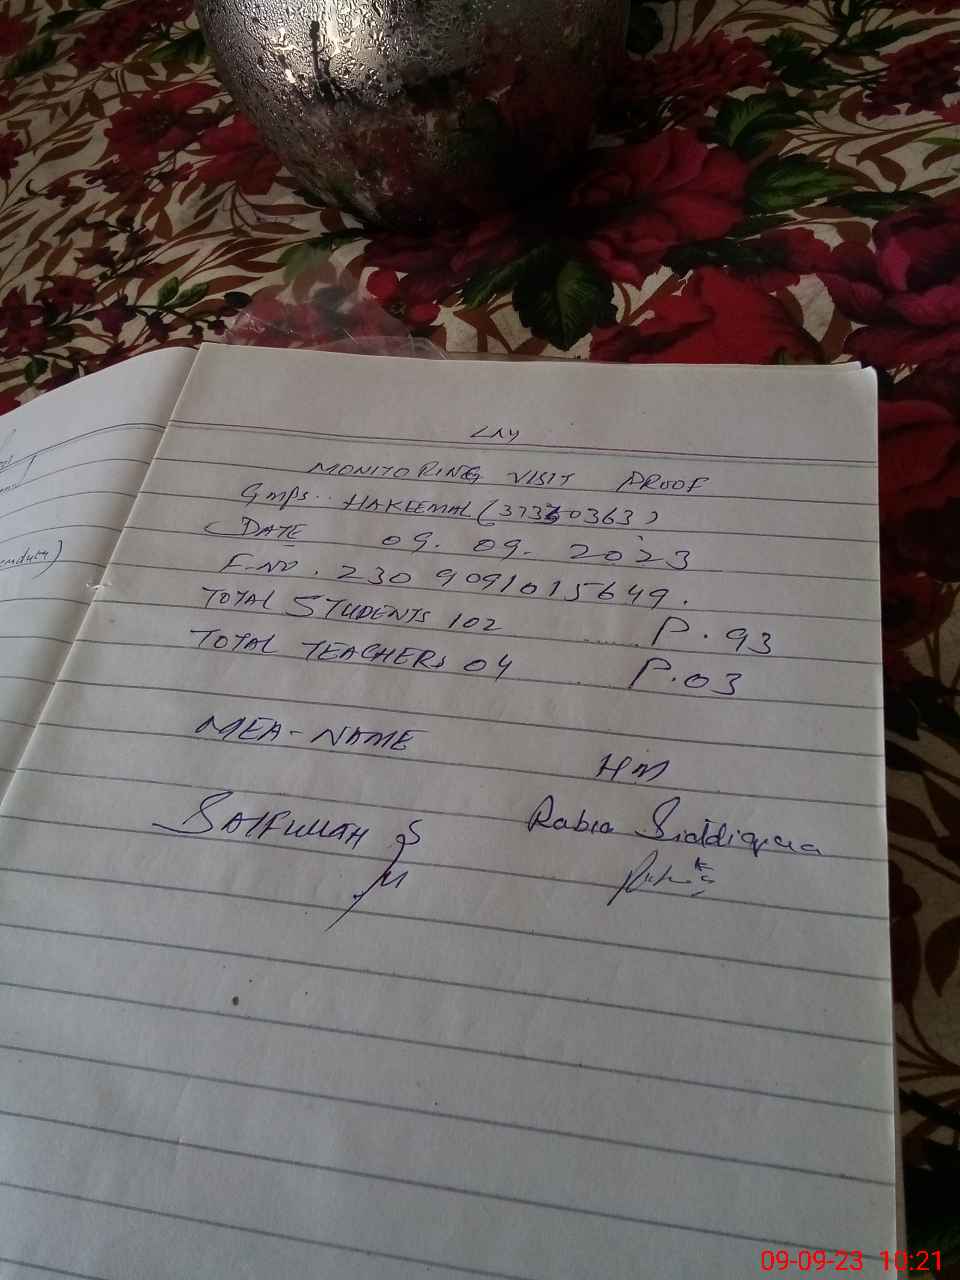 MONITORING VISIT PROOF
GMPS.. HAKEEMAL (37330363)
DATE 09. 09. 2023
F-NO. 2309091015649.
TOTAL STUDENTS 102 ...... P. 93
TOTAL TEACHERS 04 . P.03
MEA-NAME
HM
SAIFULLAH
Rabia Siddiqua
09-09-23 10:21